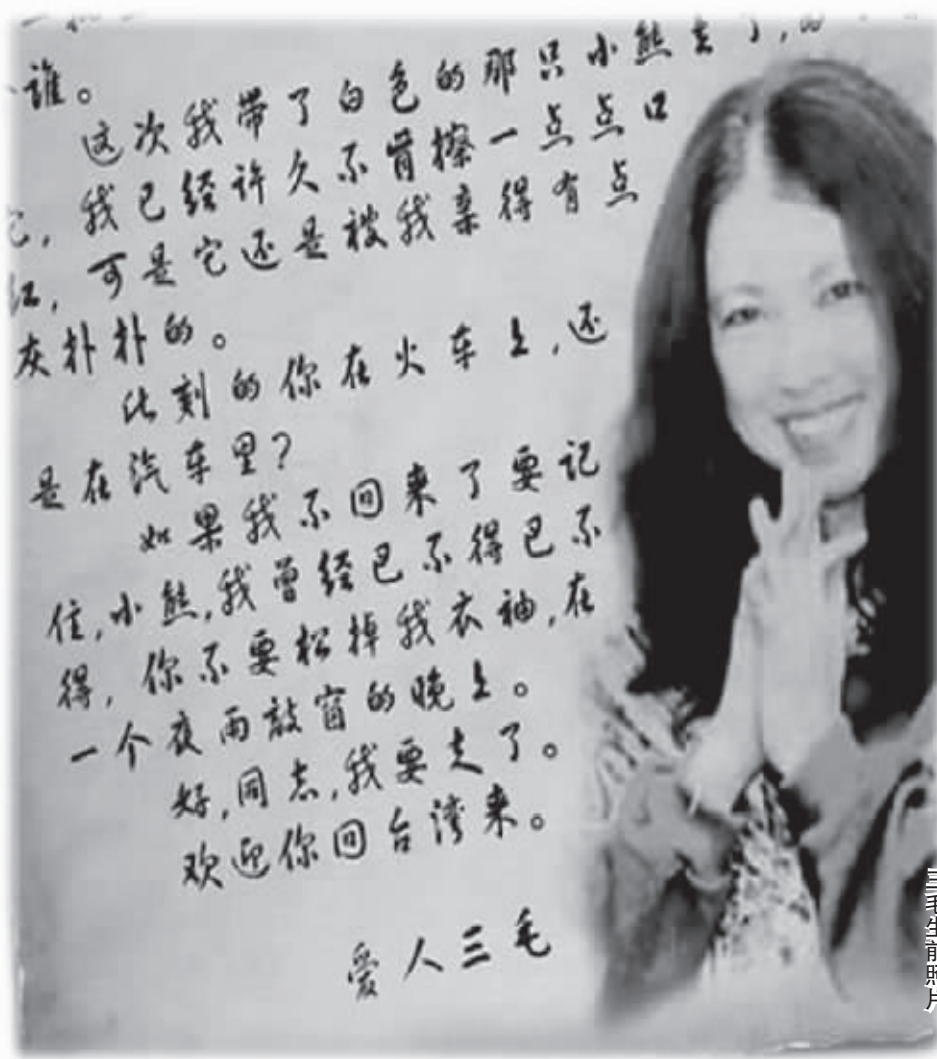 谁。
这次我带了白色的那只小熊去了,
它,我已经许久不肯擦一点点口
红,可是它还是被我亲得有点
灰扑扑的。
此刻的你在火车上,还
是在汽车里?
如果我不回来了要记
住,小熊,我曾经巴不得巴不
得,你不要松掉我衣袖,在
一个夜雨敲窗的晚上。
好,同志,我要走了。
欢迎你回台湾来。
爱人三毛